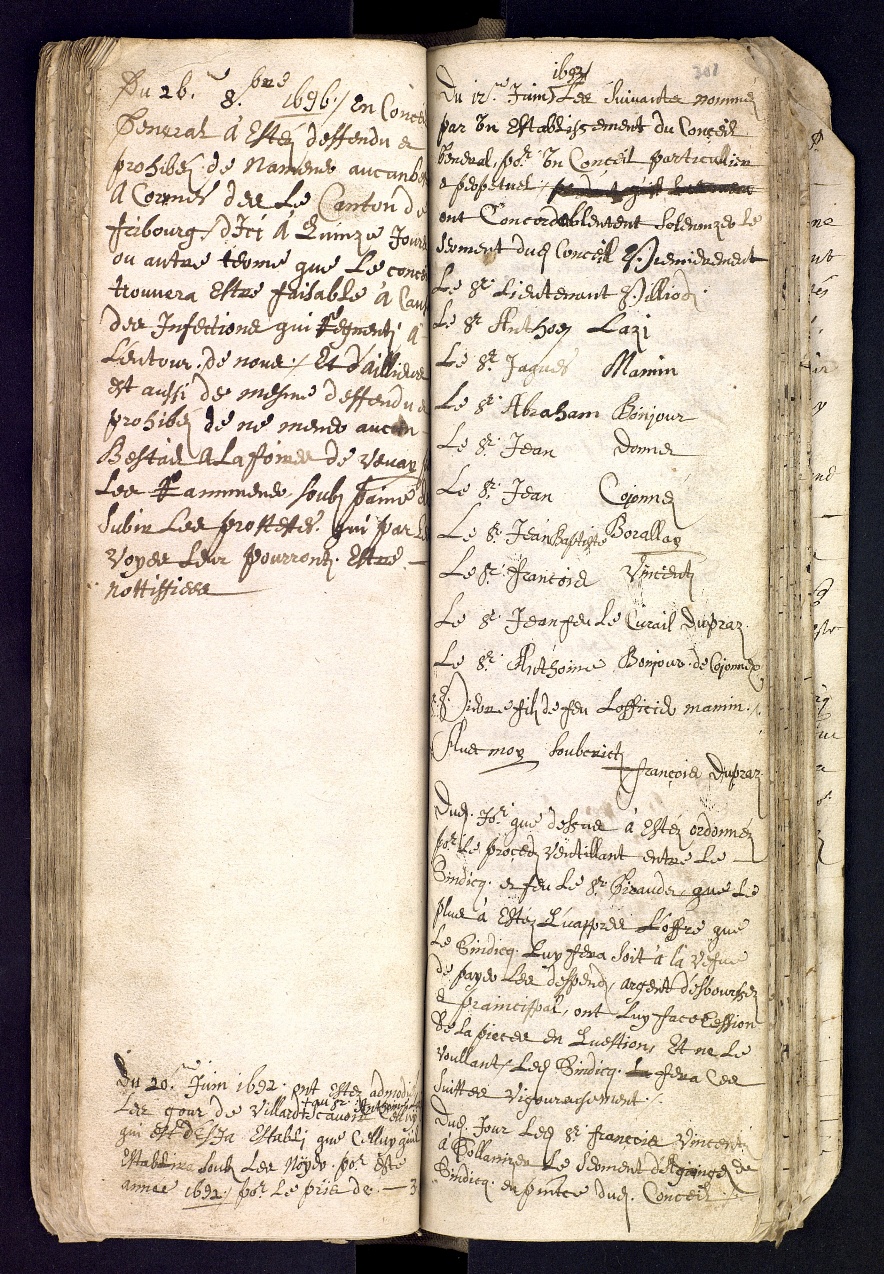 Du 26.me 8.bre
1696 / En Conce
General à Estéz deffendu et
prohibéz de
A Cormes des Le Canton de
fribourg / d'Ici à Quinze Jours
ou autre terme que Le conce
trouvera Estre faisable à Cau
des Infections qui Regnent à
L'entour de nous / Et d'aillieurs
est aussi de mesme deffendu e
prohibéz de ne mener aucun
Bestail A La foire de Vevay
Les Rammener soubz paine de
subir Les prottestes qui par Le
Voyer Leur pourront Estre
nottiffiees
Du 20.me Juin 1692. ont estez
Les gour de Villard scavoir
qui est desja Establi que Celluy qui
Establira soubz Les Noyer po.r este
annee 1692 / po.r Le pris de — 3
301
1692
Du 12.me Juin Les suivants nommez
par un Establissement du Conceil
General, po.r un Conceil particulier
e perpetuel /
ont Concordablement solemnizer Le
serment dud Conceil Premierement
Le S.r Lieutenant Pilliod
Le S.r Anthoez Lazi
Le S.r Jaques Mamin
Le S.r Abraham Bonjour
Le S.r Jean Donner
Le S.r Jean Cojonnez
Le S.r Jean Baptiste Borallay
Le S.r francois Vincent
Le S.r Jean feu Le Curail Dupraz
Le S.r Anthoine Bonjour de Cojonnex
Pierre filz de feu Lofficier mamin
Avec moy soubcrict
francois Dupraz
Dud. Jo.r que dessus à Estéz ordonnéz
po.r Le procedz Ventillant entre Le
Sindicq. et feu Le S.r Girauder, que Le
plus à Estéz L'offre que
Le Sindicq. Luy fera soit à la vefve
de payer Les despendz, argent desbourséz
e praincipal, ont Luy face Cession
de la pieces en Questions, Et ne Le
voullant / Led Sindicq. fera Ces
suittes vigoureusement
Dud. Jour Led S.r francois Vincent
à Sollamizer Le Serment de
Sindicq. en dud. Conceil